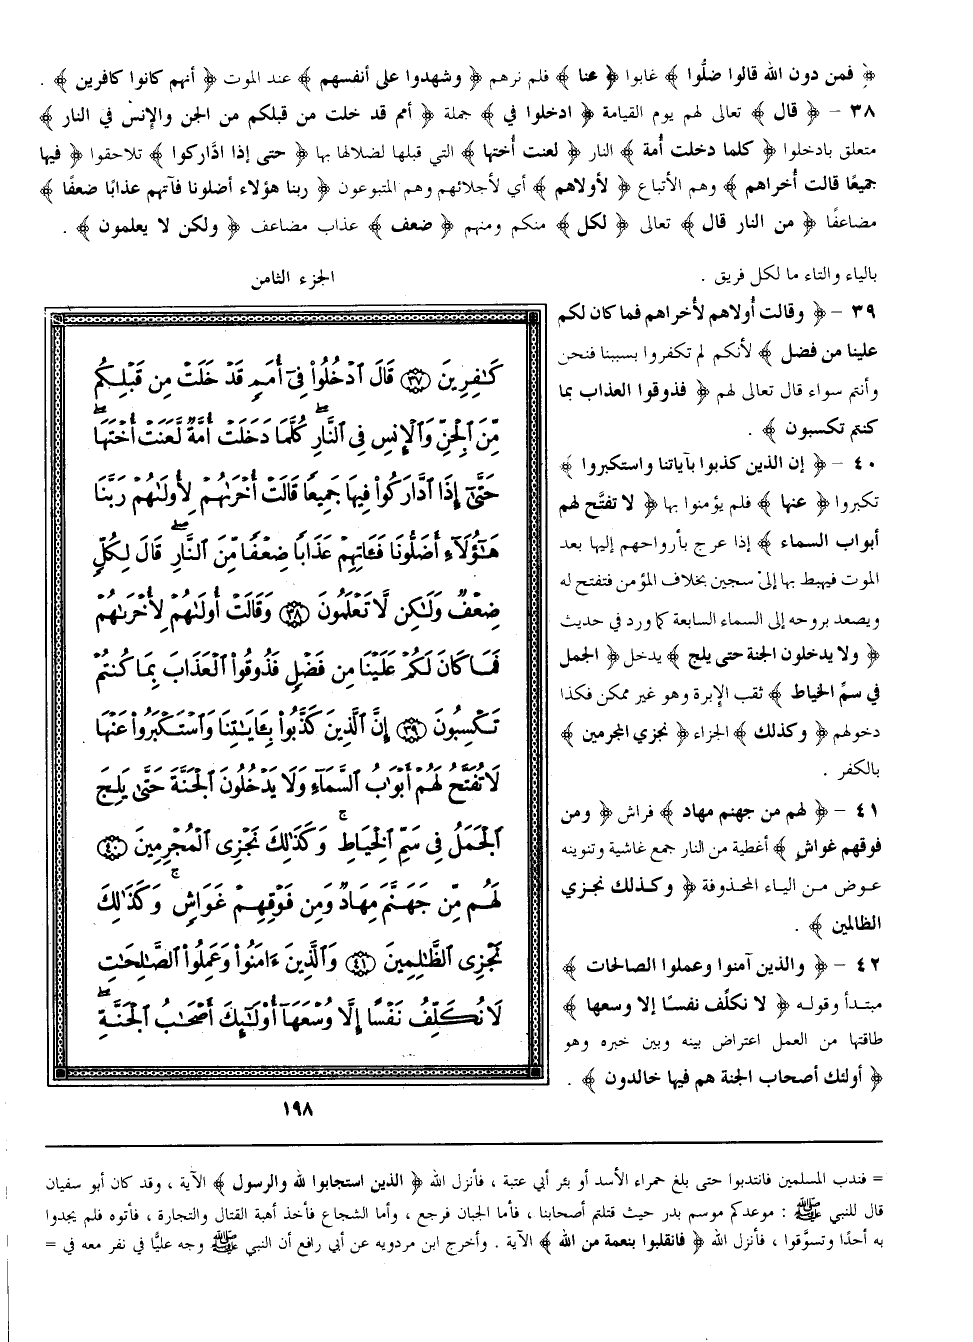 ﴿ فمن دون الله قالوا ضلُّوا ﴾ غابوا ﴿ عنا ﴾ فلم نرهم ﴿ وشهدوا على أنفسهم ﴾ عند الموت ﴿ أنهم كانوا كافرين ﴾ .
٣٨ – ﴿ قال ﴾ تعالى لهم يوم القيامة ﴿ ادخلوا في ﴾ جملة ﴿ أمم قد خلت من قبلكم من الجن والإنس في النار ﴾
متعلق بادخلوا ﴿ كلما دخلت أمة ﴾ النار ﴿ لعنت أختها ﴾ التي قبلها لضلالها بها ﴿ حتى إذا ادَّاركوا ﴾ تلاحقوا ﴿ فيها
جميعًا قالت أُخراهم ﴾ وهم الأتباع ﴿ لأولاهم ﴾ أي لأجلائهم وهم المتبوعون ﴿ ربنا هؤلاء أضلونا فآتهم عذابًا ضعفًا ﴾
مضاعفًا ﴿ من النار قال ﴾ تعالى ﴿ لكل ﴾ منكم ومنهم ﴿ ضعف ﴾ عذاب مضاعف ﴿ ولكن لا يعلمون ﴾ .
بالياء والتاء ما لكل فريق .
٣٩ – ﴿ وقالت أولاهم لأخراهم فما كان لكم
علينا من فضل ﴾ لأنكم لم تكفروا بسببنا فنحن
وأنتم سواء قال تعالى لهم ﴿ فذوقوا العذاب بما
كنتم تكسبون ﴾ .
٤٠ – ﴿ إن الذين كذبوا بآياتنا واستكبروا ﴾
تكبروا ﴿ عنها ﴾ فلم يؤمنوا بها ﴿ لا تفتَّح لهم
أبواب السماء ﴾ إذا عرج بأرواحهم إليها بعد
الموت فيهبط بها إلى سجين بخلاف المؤمن فتفتح له
ويصعد بروحه إلى السماء السابعة كما ورد في حديث
﴿ ولا يدخلون الجنة حتى يلج ﴾ يدخل ﴿ الجمل
في سمِّ الخياط ﴾ ثقب الإبرة وهو غير ممكن فكذا
دخولهم ﴿ وكذلك ﴾ الجزاء ﴿ نجزي المجرمين ﴾
بالكفر .
٤١ – ﴿ لهم من جهنم مهاد ﴾ فراش ﴿ ومن
فوقهم غواش ﴾ أغطية من النار جمع غاشية وتنوينه
عوض من الياء المحذوفة ﴿ وكذلك نجزي
الظالمين ﴾ .
٤٢ – ﴿ والذين آمنوا وعملوا الصالحات ﴾
مبتدأ وقوله ﴿ لا نكلِّف نفسًا إلا وسعها ﴾
طاقتها من العمل اعتراض بينه وبين خبره وهو
﴿ أولئك أصحاب الجنة هم فيها خالدون ﴾ .
الجزء الثامن
كَـٰفِرِينَ ٣٧ قَالَ ٱدْخُلُوا۟ فِىٓ أُمَمٍ قَدْ خَلَتْ مِن قَبْلِكُم
مِّنَ ٱلْجِنِّ وَٱلْإِنسِ فِى ٱلنَّارِ ۖ كُلَّمَا دَخَلَتْ أُمَّةٌ لَّعَنَتْ أُخْتَهَا ۖ
حَتَّىٰٓ إِذَا ٱدَّارَكُوا۟ فِيهَا جَمِيعًا قَالَتْ أُخْرَىٰهُمْ لِأُولَىٰهُمْ رَبَّنَا
هَـٰٓؤُلَآءِ أَضَلُّونَا فَـَٔاتِهِمْ عَذَابًا ضِعْفًا مِّنَ ٱلنَّارِ ۖ قَالَ لِكُلٍّ
ضِعْفٌ وَلَـٰكِن لَّا تَعْلَمُونَ ٣٨ وَقَالَتْ أُولَىٰهُمْ لِأُخْرَىٰهُمْ
فَمَا كَانَ لَكُمْ عَلَيْنَا مِن فَضْلٍ فَذُوقُوا۟ ٱلْعَذَابَ بِمَا كُنتُمْ
تَكْسِبُونَ ٣٩ إِنَّ ٱلَّذِينَ كَذَّبُوا۟ بِـَٔايَـٰتِنَا وَٱسْتَكْبَرُوا۟ عَنْهَا
لَا تُفَتَّحُ لَهُمْ أَبْوَٰبُ ٱلسَّمَآءِ وَلَا يَدْخُلُونَ ٱلْجَنَّةَ حَتَّىٰ يَلِجَ
ٱلْجَمَلُ فِى سَمِّ ٱلْخِيَاطِ ۚ وَكَذَٰلِكَ نَجْزِى ٱلْمُجْرِمِينَ ٤٠
لَهُم مِّن جَهَنَّمَ مِهَادٌ وَمِن فَوْقِهِمْ غَوَاشٍ ۚ وَكَذَٰلِكَ
نَجْزِى ٱلظَّـٰلِمِينَ ٤١ وَٱلَّذِينَ ءَامَنُوا۟ وَعَمِلُوا۟ ٱلصَّـٰلِحَـٰتِ
لَا نُكَلِّفُ نَفْسًا إِلَّا وُسْعَهَآ أُو۟لَـٰٓئِكَ أَصْحَـٰبُ ٱلْجَنَّةِ ۖ
١٩٨
= فندب المسلمين فانتدبوا حتى بلغ حمراء الأسد أو بئر أبي عتبة ، فأنزل الله ﴿ الذين استجابوا لله والرسول ﴾ الآية ، وقد كان أبو سفيان
قال للنبي ﷺ : موعدكم موسم بدر حيث قتلتم أصحابنا ، فأما الجبان فرجع ، وأما الشجاع فأخذ أهبة القتال والتجارة ، فأتوه فلم يجدوا
به أحدًا وتسوَّقوا ، فأنزل الله ﴿ فانقلبوا بنعمة من الله ﴾ الآية . وأخرج ابن مردويه عن أبي رافع أن النبي ﷺ وجه عليًّا في نفر معه في =